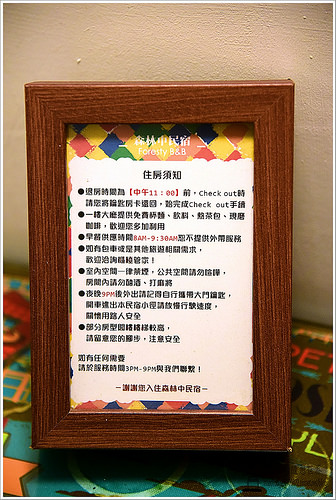 森林中民宿
Foresty B&B
住房須知
●退房時間為【中午11：00】前，Check out時
請您將鑰匙房卡退回，始完成Check out手續
●一樓大廳提供免費杯麵、飲料、熱茶包、現磨
咖啡，歡迎您多加利用
●早餐供應時間8AM-9:30AM恕不提供外帶服務
●如有包車或是其他旅遊相關需求，
歡迎洽詢櫃檯管家！
●室內空間一律禁煙，公共空間請勿喧嘩，
房間內請勿酗酒、打麻將
●夜晚9PM後外出請記得自行攜帶大門鑰匙，
開車進出本民宿小徑請放慢行駛速度，
關懷用路人安全
●部分房型閣樓樓梯較高，
請留意您的腳步，注意安全
如有任何需要
請於服務時間3PM-9PM與我們聯繫！
－謝謝您入住森林中民宿－